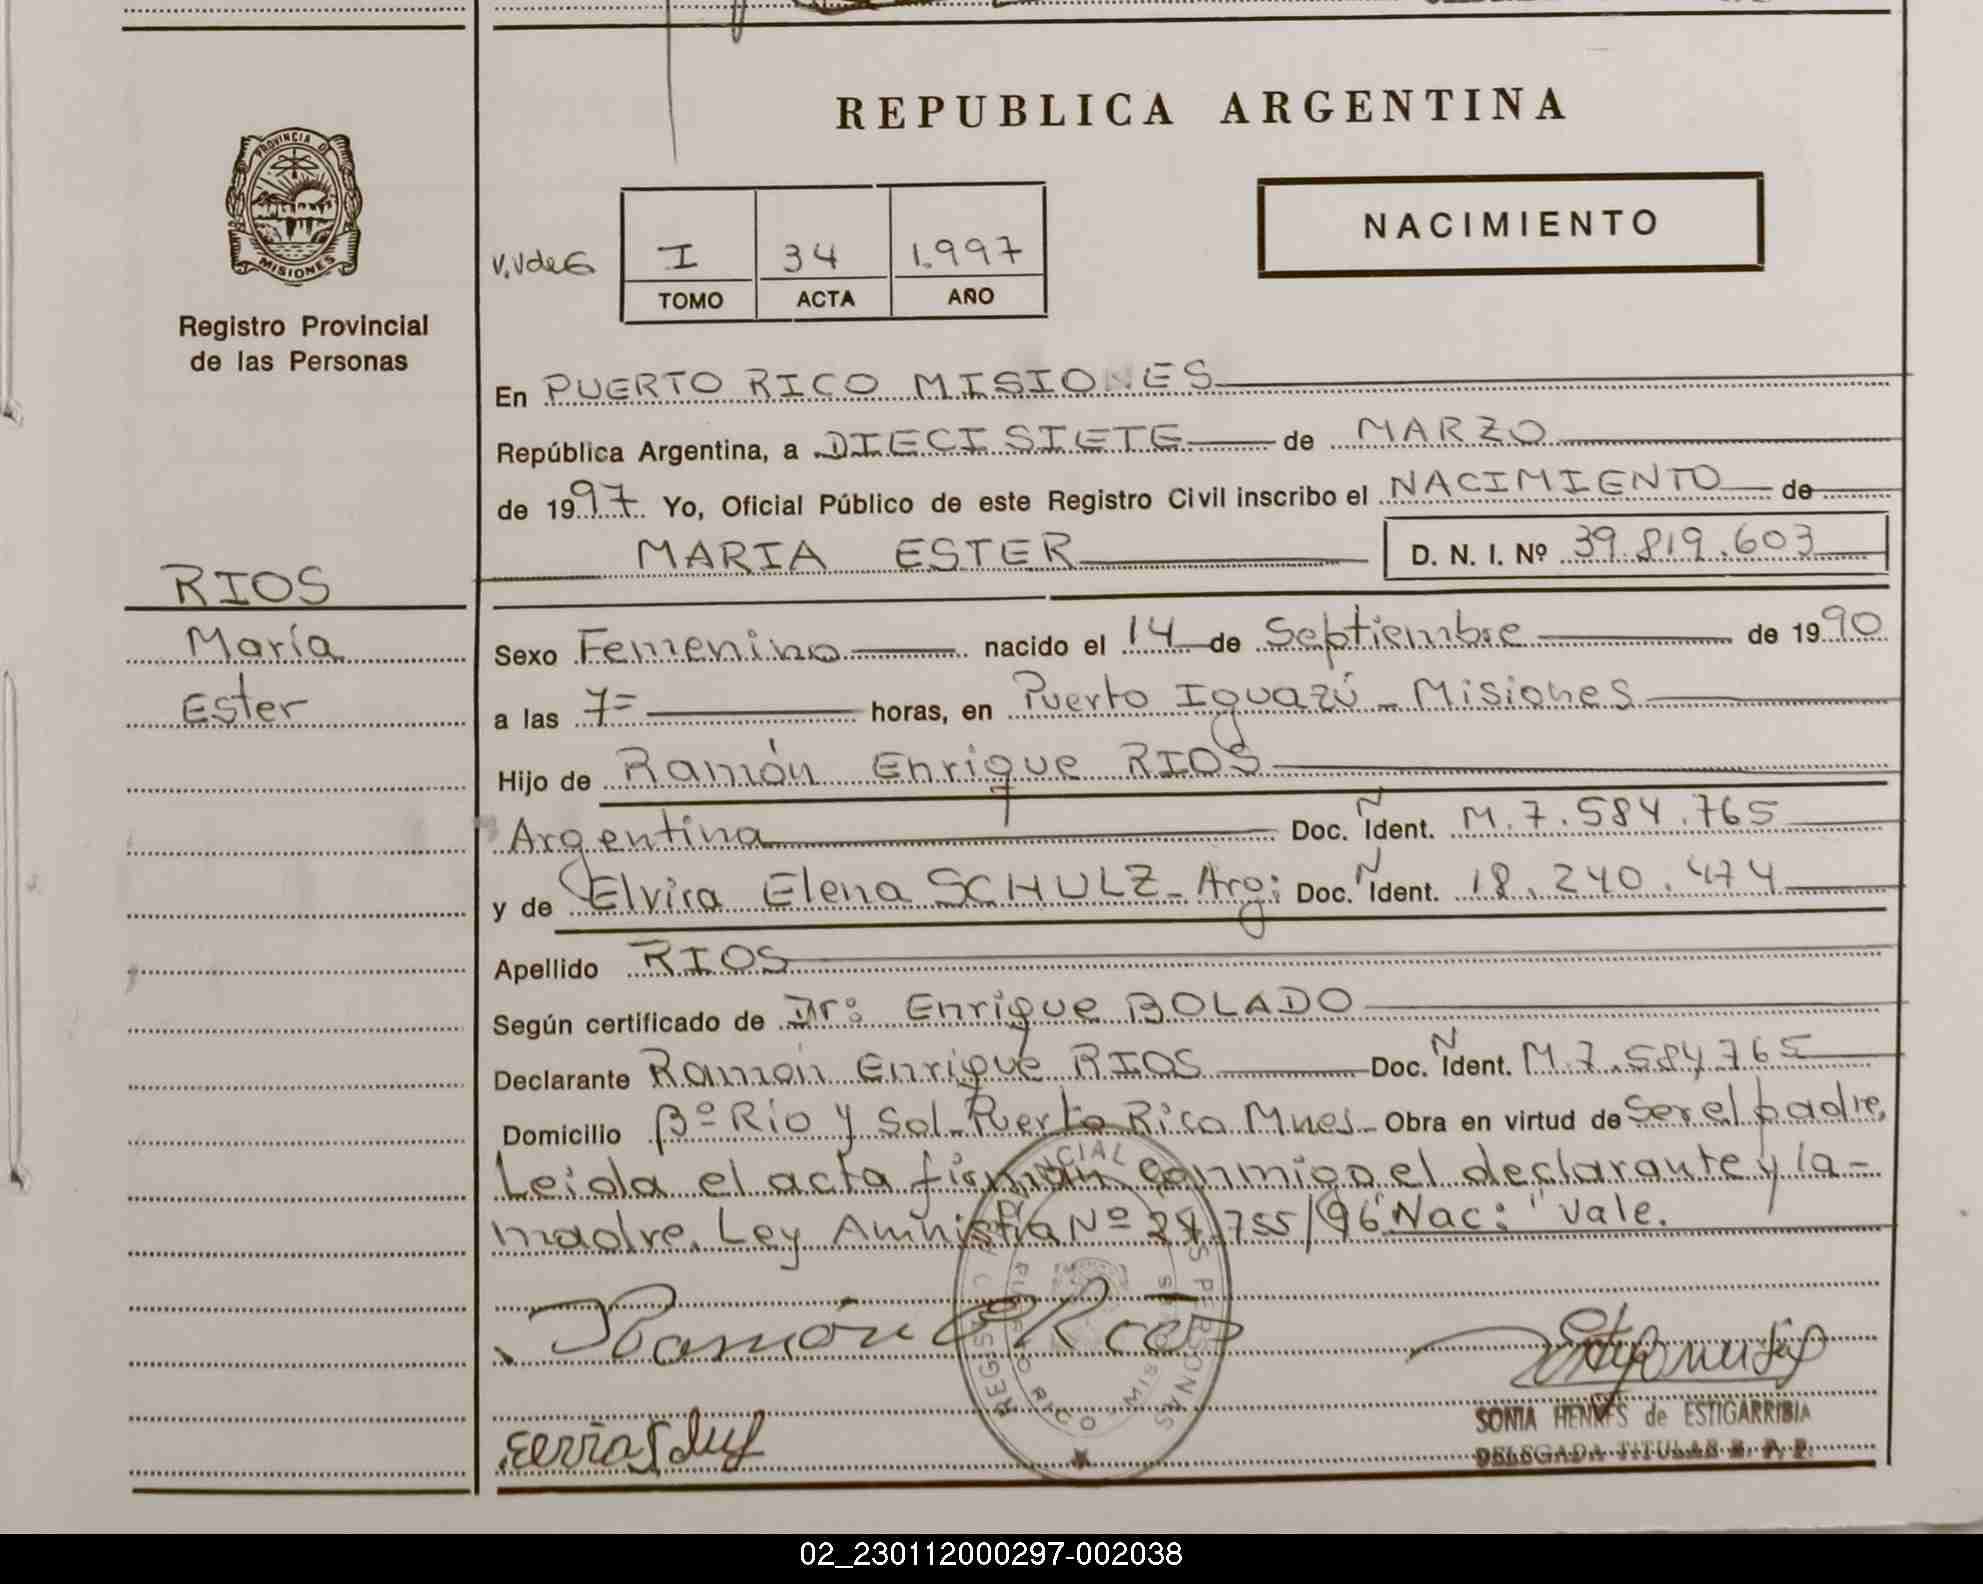 REPUBLICA ARGENTINA
PROVINCIA DE
MISIONES
NACIMIENTO
V.VdeG I 34 1.997
TOMO ACTA AÑO
Registro Provincial
de las Personas
En PUERTO RICO MISIONES
República Argentina, a DIECISIETE de MARZO
de 1997 Yo, Oficial Público de este Registro Civil inscribo el NACIMIENTO de
MARIA ESTER D. N. I. Nº 39.819.603
RIOS
María
Ester
Sexo Femenino nacido el 14 de Septiembre de 1990
a las 7= horas, en Puerto Iguazú - Misiones
Hijo de Ramón Enrique RIOS
Argentina Doc. Ñ Ident. M. 7.584.765
y de Elvira Elena SCHULZ - Arg: Doc. Ñ Ident. 18.240.474
Apellido RIOS
Según certificado de Dr: Enrique BOLADO
Declarante Ramón Enrique RIOS Doc. Ñ Ident. M.7.584.765
Domicilio Bº Río y Sol - Puerto Rico Mnes - Obra en virtud de ser el padre,
Leida el acta firman conmigo el declarante y la -
madre. Ley Amnistía Nº 24.755/96 "Nac:" Vale.
Ramón E Rios
SONIA HENNES de ESTIGARRIBIA
DELEGADA TITULAR R. P. P.
02_230112000297-002038